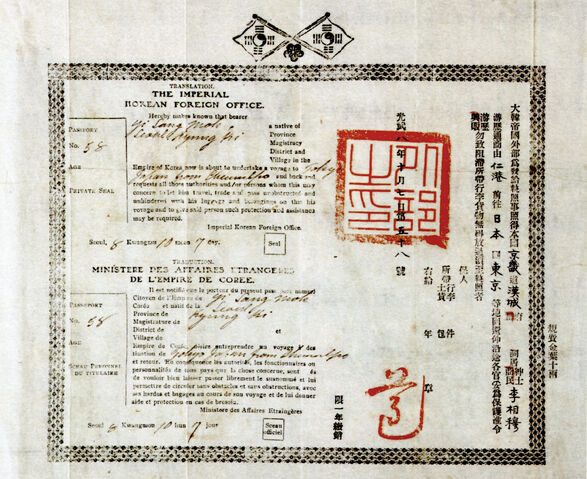 TRANSLATION.
THE IMPERIAL
KOREAN FOREIGN OFFICE.
Hereby makes known that bearer
Yi Sang Mok a native of
Seoul Kyung Ki Province
Magistracy
District and
Village in the
Empire of Korea now is about to undertake a voyage to Tokyo
Japan from Chemulpo and back and
requests all those authorities and/or persons whom this may
concern to let him travel, trade and pass unobstructed and
unhindered with his luggage and belongings on this
voyage and to give said person such protection and assistance
may be required.
Imperial Korean Foreign Office.
PASSPORT
No. 58
AGE
PRIVATE SEAL
Seoul, 8 Kwangmu 10 moon 7 day.
Seal
TRADUCTION.
MINISTÈRE DES AFFAIRES ETRANGÈRES
DE L'EMPIRE DE CORÉE.
Il est notifié que le porteur du présent passeport nommé
Citoyen de l'Empire de Yi Sang Mok
Corée et natif de la Seoul
Province de Kyung Ki
Magistrature de
District de et
Village de
Empire de Corée désire entreprendre un voyage à des-
tination de Tokyo Japan from Chemulpo
et retour. En conséquence les autorités, les fonctionnaires ou
personnalités de tous pays que la chose concerne, sont de
de vouloir bien laisser passer librement le susnommé et lui
permettre de circuler sans obstacles et sans obstructions, avec
ses hardes et bagages au cours de son voyage et de lui donner
aide et protection en cas de besoin.
Ministère des Affaires Etrangères
PASSEPORT
No. 58
AGE
SCEAU PERSONNEL
DU TITULAIRE
Seoul 8 Kwangmou 10 lun 7 jour
Sceau
officiel
規費金葉十兩
大韓帝國外部爲發給執照事照得本國京畿道漢城府
李相穆
游歷通商由仁港前往日本國東京等地
游歷勿致阻滯所帶行李貨物無料放
執照者
保人
所帶行李 件
士貨 包
右給
年 歲
限一年繳銷
光武八年十月七日第五十八號
外部之印